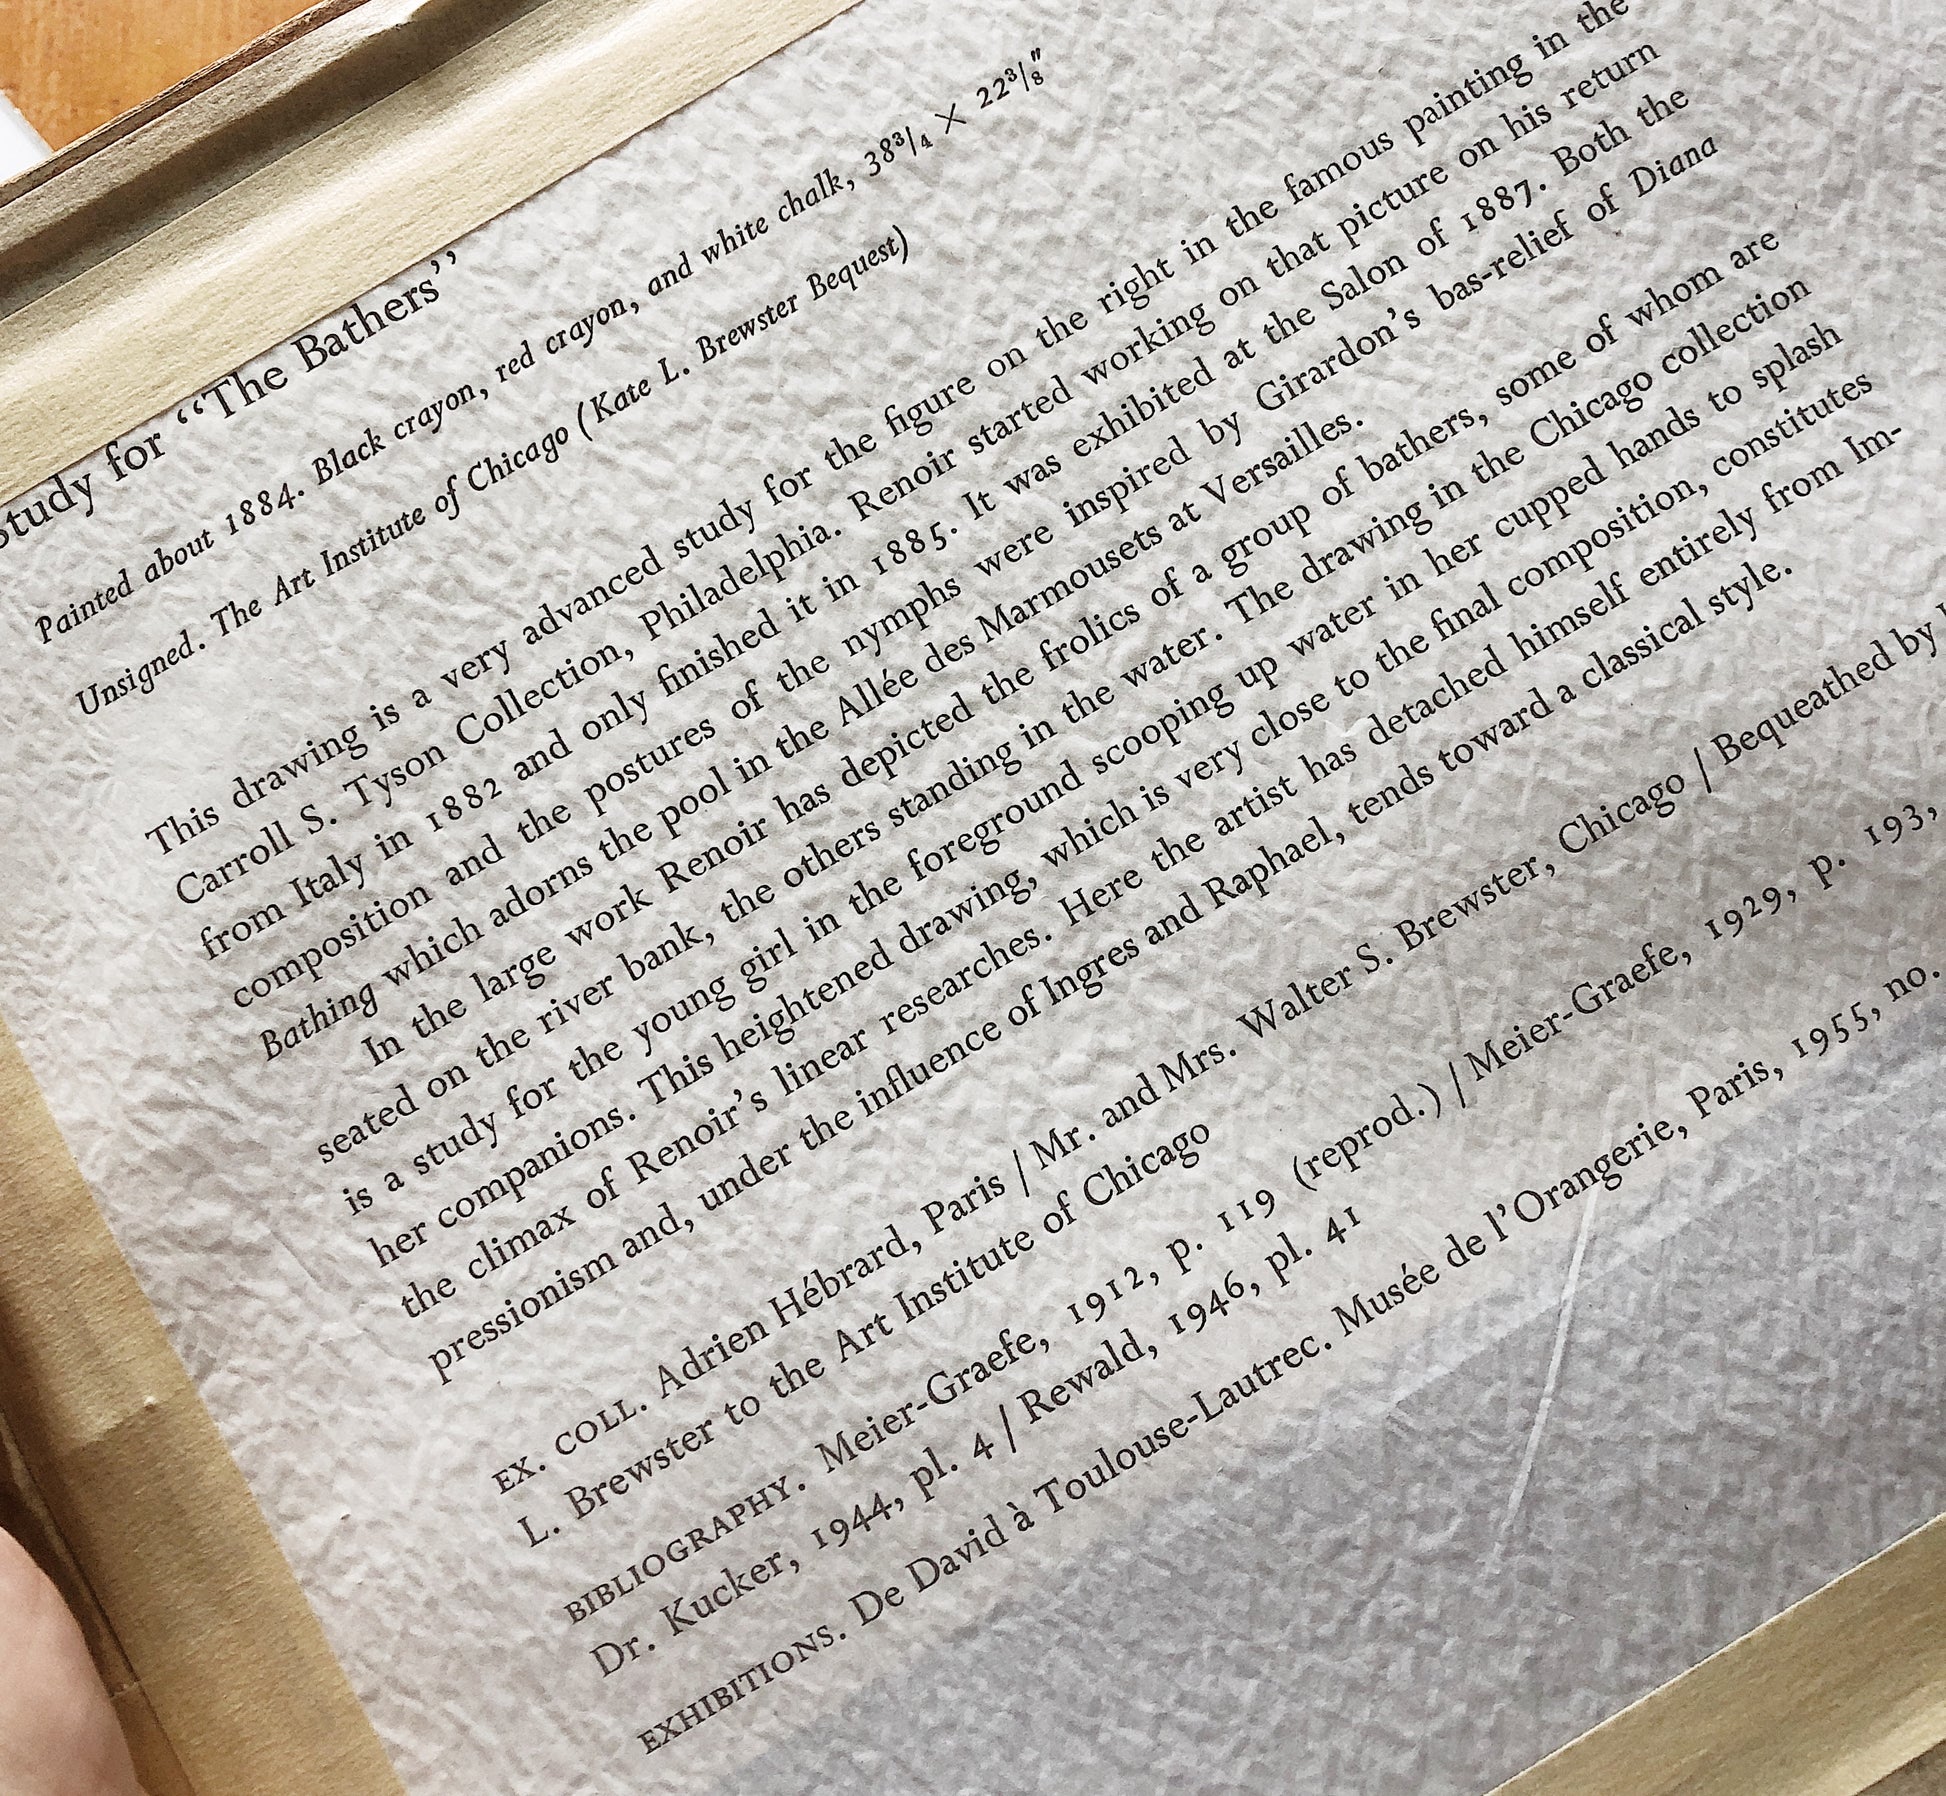 Study for “The Bathers”
Painted about 1884. Black crayon, red crayon, and white chalk, 38¾ × 22⅜"
Unsigned. The Art Institute of Chicago (Kate L. Brewster Bequest)
This drawing is a very advanced study for the figure on the right in the famous painting in the
Carroll S. Tyson Collection, Philadelphia. Renoir started working on that picture on his return
from Italy in 1882 and only finished it in 1885. It was exhibited at the Salon of 1887. Both the
composition and the postures of the nymphs were inspired by Girardon’s bas-relief of Diana
Bathing which adorns the pool in the Allée des Marmousets at Versailles.
In the large work Renoir has depicted the frolics of a group of bathers, some of whom are
seated on the river bank, the others standing in the water. The drawing in the Chicago collection
is a study for the young girl in the foreground scooping up water in her cupped hands to splash
her companions. This heightened drawing, which is very close to the final composition, constitutes
the climax of Renoir’s linear researches. Here the artist has detached himself entirely from Im-
pressionism and, under the influence of Ingres and Raphael, tends toward a classical style.
EX. COLL. Adrien Hébrard, Paris / Mr. and Mrs. Walter S. Brewster, Chicago / Bequeathed by
L. Brewster to the Art Institute of Chicago
BIBLIOGRAPHY. Meier-Graefe, 1912, p. 119 (reprod.) / Meier-Graefe, 1929, p. 193,
Dr. Kucker, 1944, pl. 4 / Rewald, 1946, pl. 41
EXHIBITIONS. De David à Toulouse-Lautrec. Musée de l’Orangerie, Paris, 1955, no.